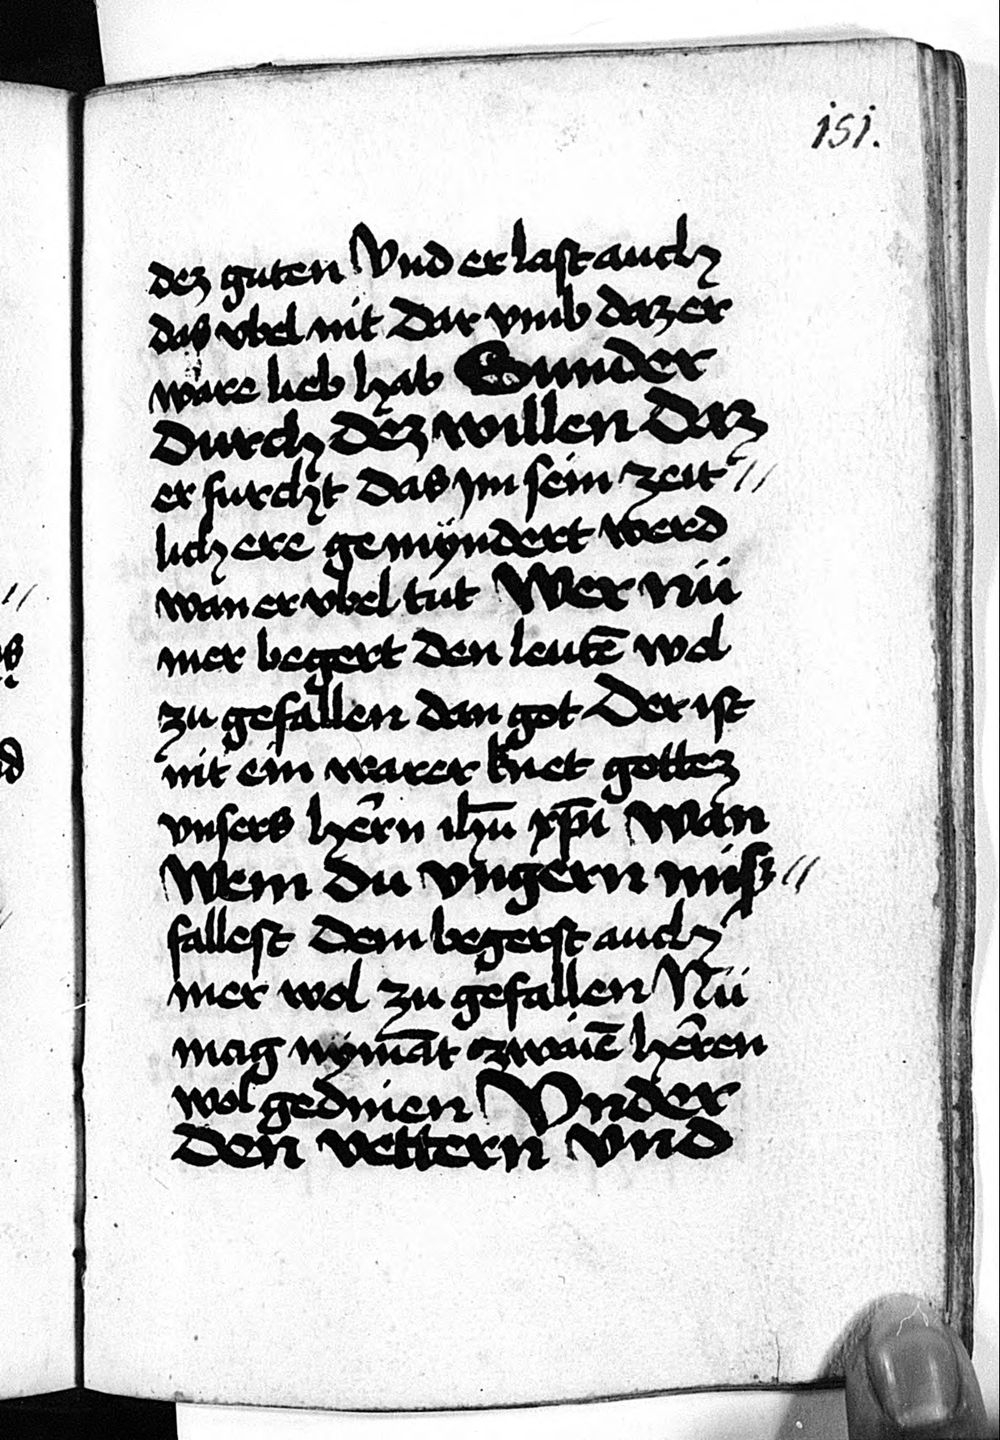 151.
dez guten Vnd er last auch
das vbel nit Dar vmb daz er
ware lieb hab Sunder
durch dez willen daz
er furcht das ym sein zeit //
lich ere gemÿndert werd
wan er vbel tut Wer nü
mer begert den leutē wol
zu gefallen dan got Der ist
nit ein warer knet gottez
vnsers hērn ihū xp̄i Wan
Wem du vngern miß //
fallest Dem begerst auch
mer wol zu gefallen Nü
mag nÿmāt zwaiē hēren
wol gedinen Vnder
den vettern vnd